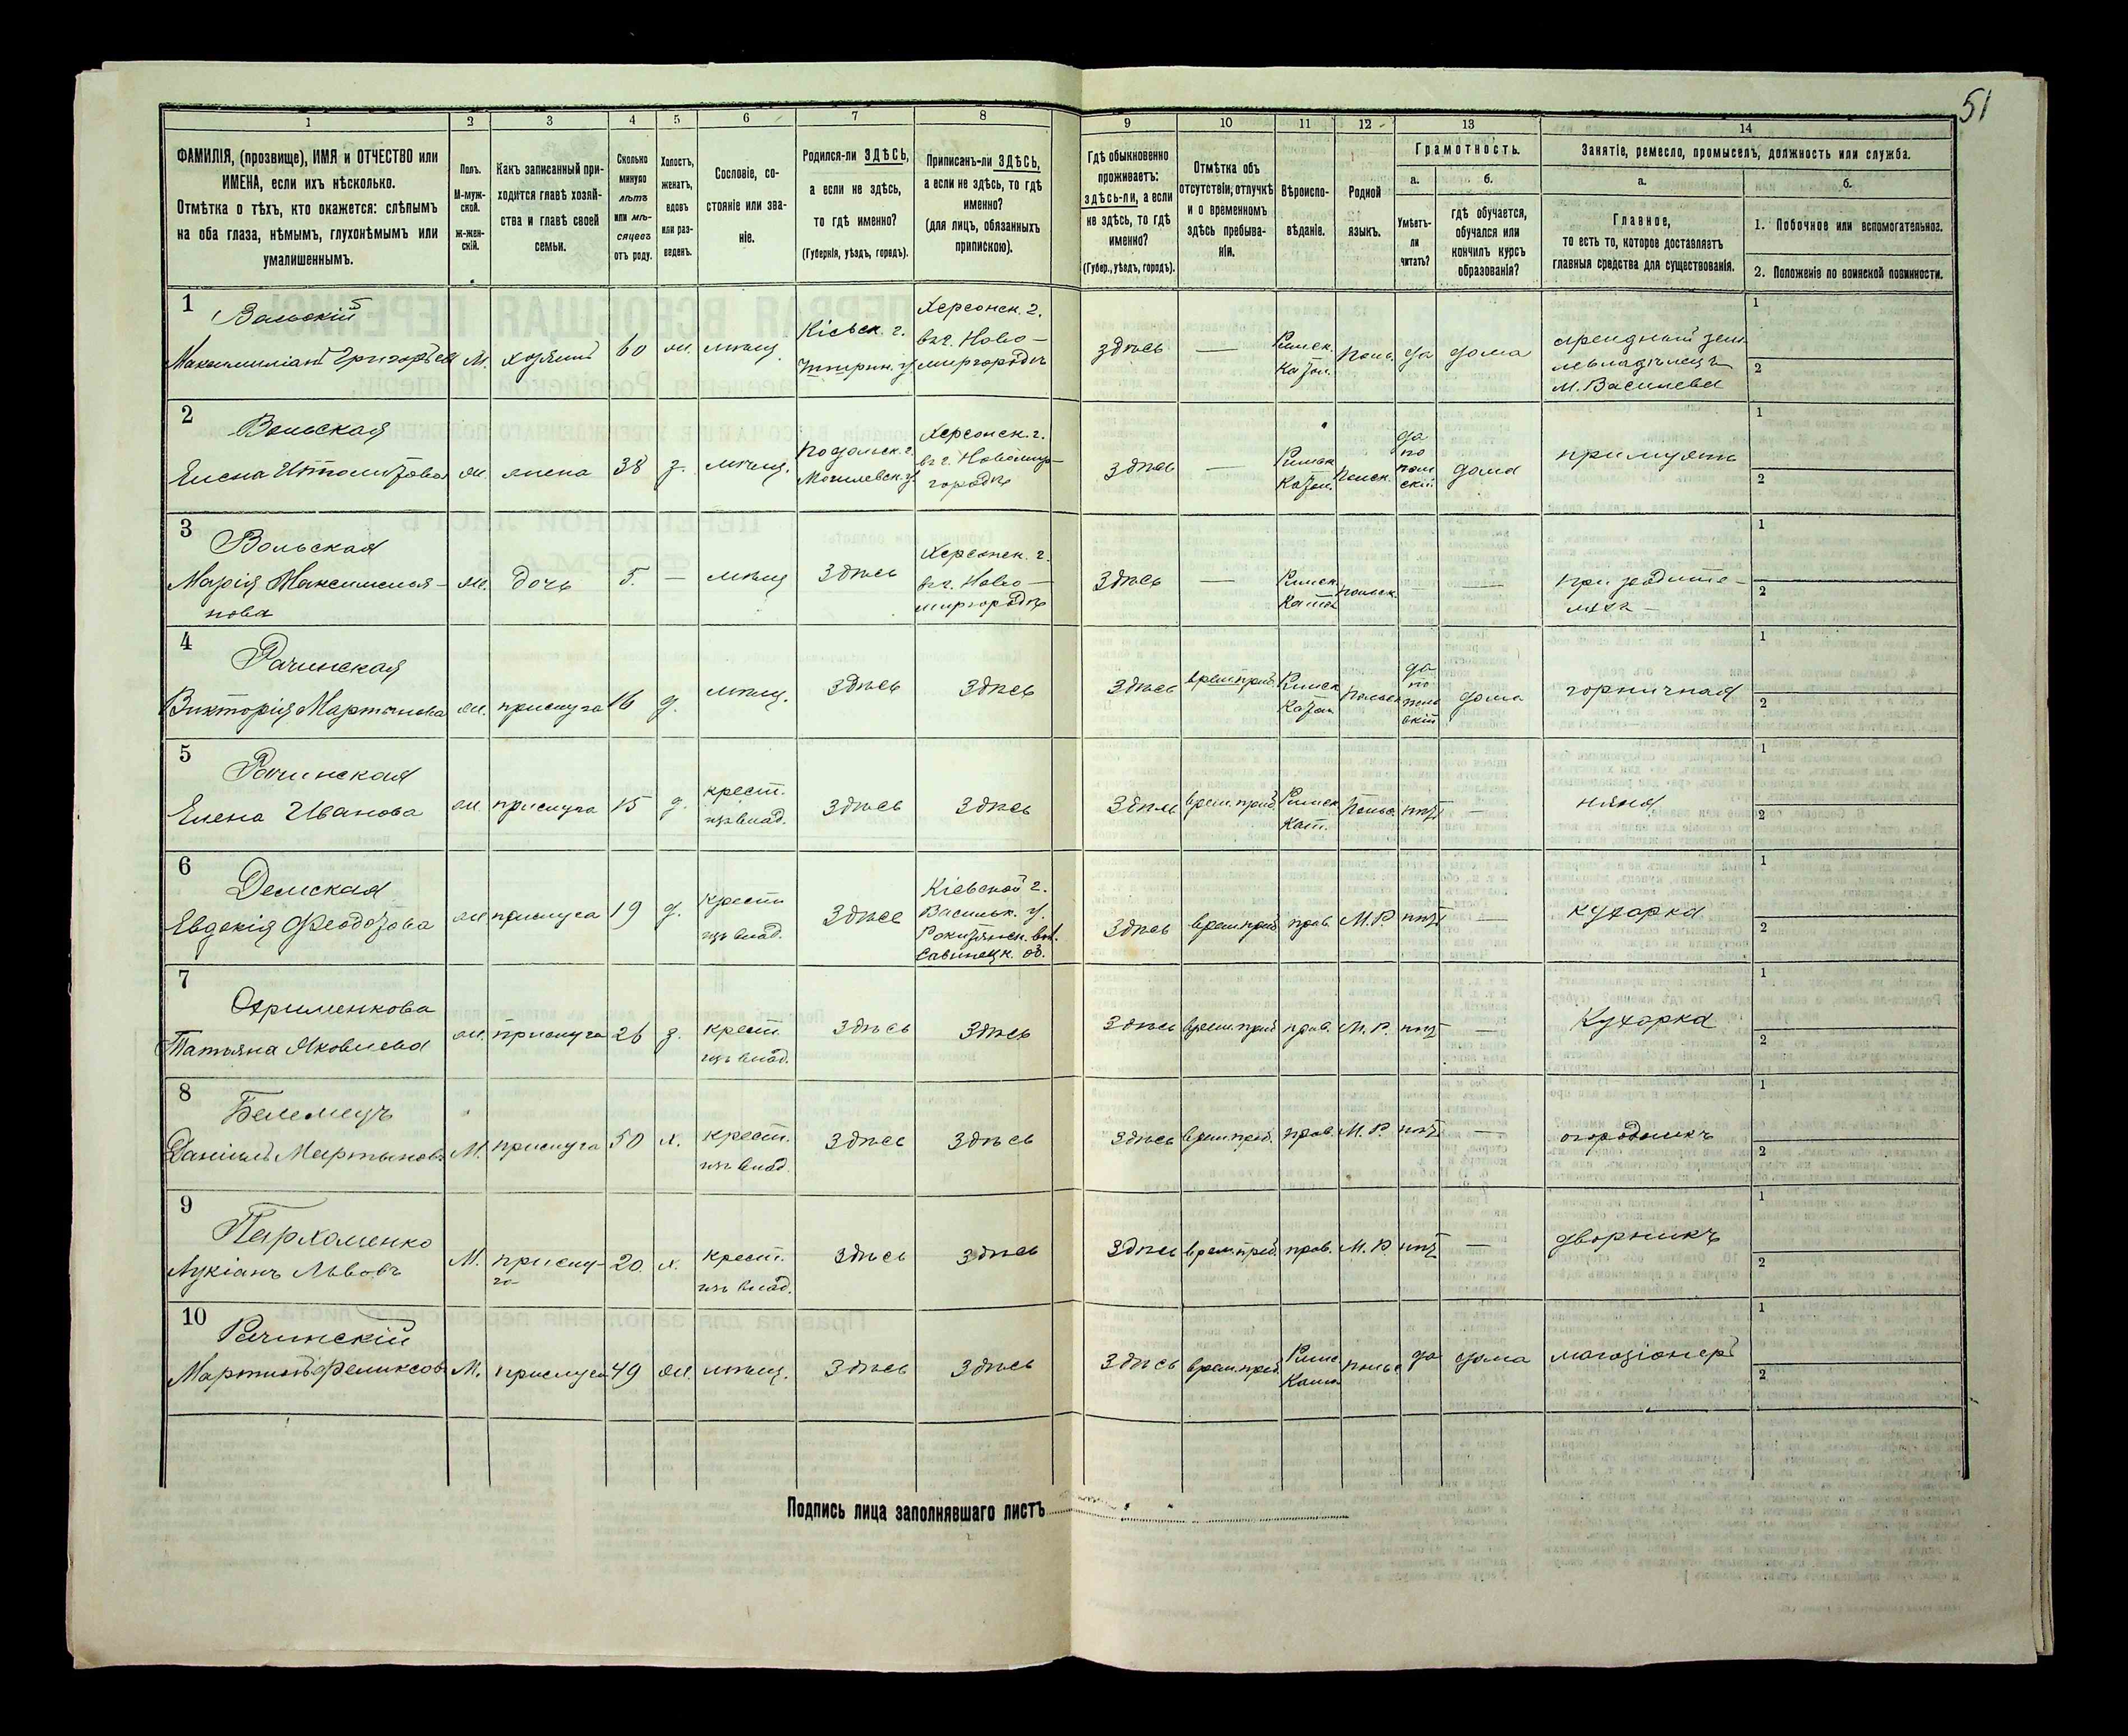 51
1
2
3
4
5
6
7
8
9
10
11
12
13
14
ФАМИЛІЯ, (прозвище), ИМЯ и ОТЧЕСТВО или
ИМЕНА, если ихъ нѣсколько.
Отмѣтка о тѣхъ, кто окажется: слѣпымъ
на оба глаза, нѣмымъ, глухонѣмымъ или
умалишеннымъ.
Полъ.
М-муж-
ской.
ж-жен-
скій.
Какъ записанный при-
ходится главѣ хозяй-
ства и главѣ своей
семьи.
Сколько
минуло
лѣтъ
или мѣ-
сяцевъ
отъ роду.
Холостъ,
женатъ,
вдовъ
или раз-
веденъ.
Сословіе, со-
стояніе или зва-
ніе.
Родился-ли ЗДѢСЬ,
а если не здѣсь,
то гдѣ именно?
(Губернія, уѣздъ, городъ).
Приписанъ-ли ЗДѢСЬ,
а если не здѣсь, то гдѣ
именно?
(для лицъ, обязанныхъ
припискою).
Гдѣ обыкновенно
проживаетъ:
здѣсь-ли, а если
не здѣсь, то гдѣ
именно?
(Губер., уѣздъ, городъ).
Отмѣтка объ
отсутствіи, отлучкѣ
и о временномъ
здѣсь пребыва-
ніи.
Вѣроиспо-
вѣданіе.
Родной
языкъ.
Грамотность.
а.
б.
Умѣетъ-
ли
читать?
гдѣ обучается,
обучался или
кончилъ курсъ
образованія?
Занятіе, ремесло, промыселъ, должность или служба.
а.
б.
Главное,
то есть то, которое доставляетъ
главныя средства для существованія.
1. Побочное или вспомогательное.
2. Положеніе по воинской повинности.
1
Вольскій
Максимиліанъ Григорьев
М.
хозяинъ
60
ж.
мѣщ.
Кіевск. г.
Чигирин. у.
Херсонск. г.
въ г. Ново-
миргородѣ
здѣсь
—
Римск.
Катол.
Польс.
да
дома
М. Васильева
1
2
2
Вольская
Елена
ж.
жена
38
з.
мѣщ.
Подольск. г.
Могилевск. у.
Херсонск. г.
въ г. Новомир-
городѣ
здѣсь
—
Римск.
Катол.
Польск.
да
по
поль
скій
дома
при мужѣ
1
2
3
Вольская
Марія Максимилья-
нова
ж.
дочь
5.
—
мѣщ
здѣсь
Херсонск. г.
въ г. Ново-
миргородѣ
здѣсь
—
Римск.
Катол
польск.
—
—
при родите-
ляхъ -
1
2
4
Рачинская
Викторія Мартинова
ж.
прислуга
16
д.
мѣщ.
здѣсь
здѣсь
здѣсь
врем. преб.
Римск
Катол
Польск
да
по
поль
скій
дома
горничная
1
2
5
Рачинская
Елена Иванова
ж.
прислуга
15
д.
крест.
изъ влад.
здѣсь
здѣсь
здѣсь
врем. преб.
Римск
Кат.
Польс.
нѣтъ
—
няня
1
2
6
Демская
Евдокія Феодозова
ж
прислуга
19
д.
крест
изъ влад.
здѣсь
Кіевской г.
Васильк. у.
Рокитянск. вол.
Савинецк. об.
здѣсь
врем. преб
прав.
М. Р.
нѣтъ
—
кухарка
1
2
7
Охрименкова
Татьяна Яковлева
ж.
прислуга
26
з.
крест.
изъ влад.
здѣсь
здѣсь
здѣсь
врем. преб
прав.
М. Р.
нѣтъ
—
Кухарка
1
2
8
Даніилъ Мартыновъ
М.
прислуга
50
х.
крест.
изъ влад.
здѣсь
здѣсь
здѣсь
врем. преб.
прав.
М. Р.
нѣтъ
—
огородникъ
1
2
9
Пархоменко
Лукіанъ Львовъ
М.
прислу-
га
20.
х.
крест.
изъ влад.
здѣсь
здѣсь
здѣсь
врем. преб.
прав.
М. Р
нѣтъ
—
дворникъ
1
2
10
Рачинскій
Мартинъ Феликсов
М.
прислуга
49
ж.
мѣщ.
здѣсь
здѣсь
здѣсь
врем. преб
Римс.
Катол
польс
да
дома
магазіонеръ
1
2
Подпись лица заполнявшаго листъ